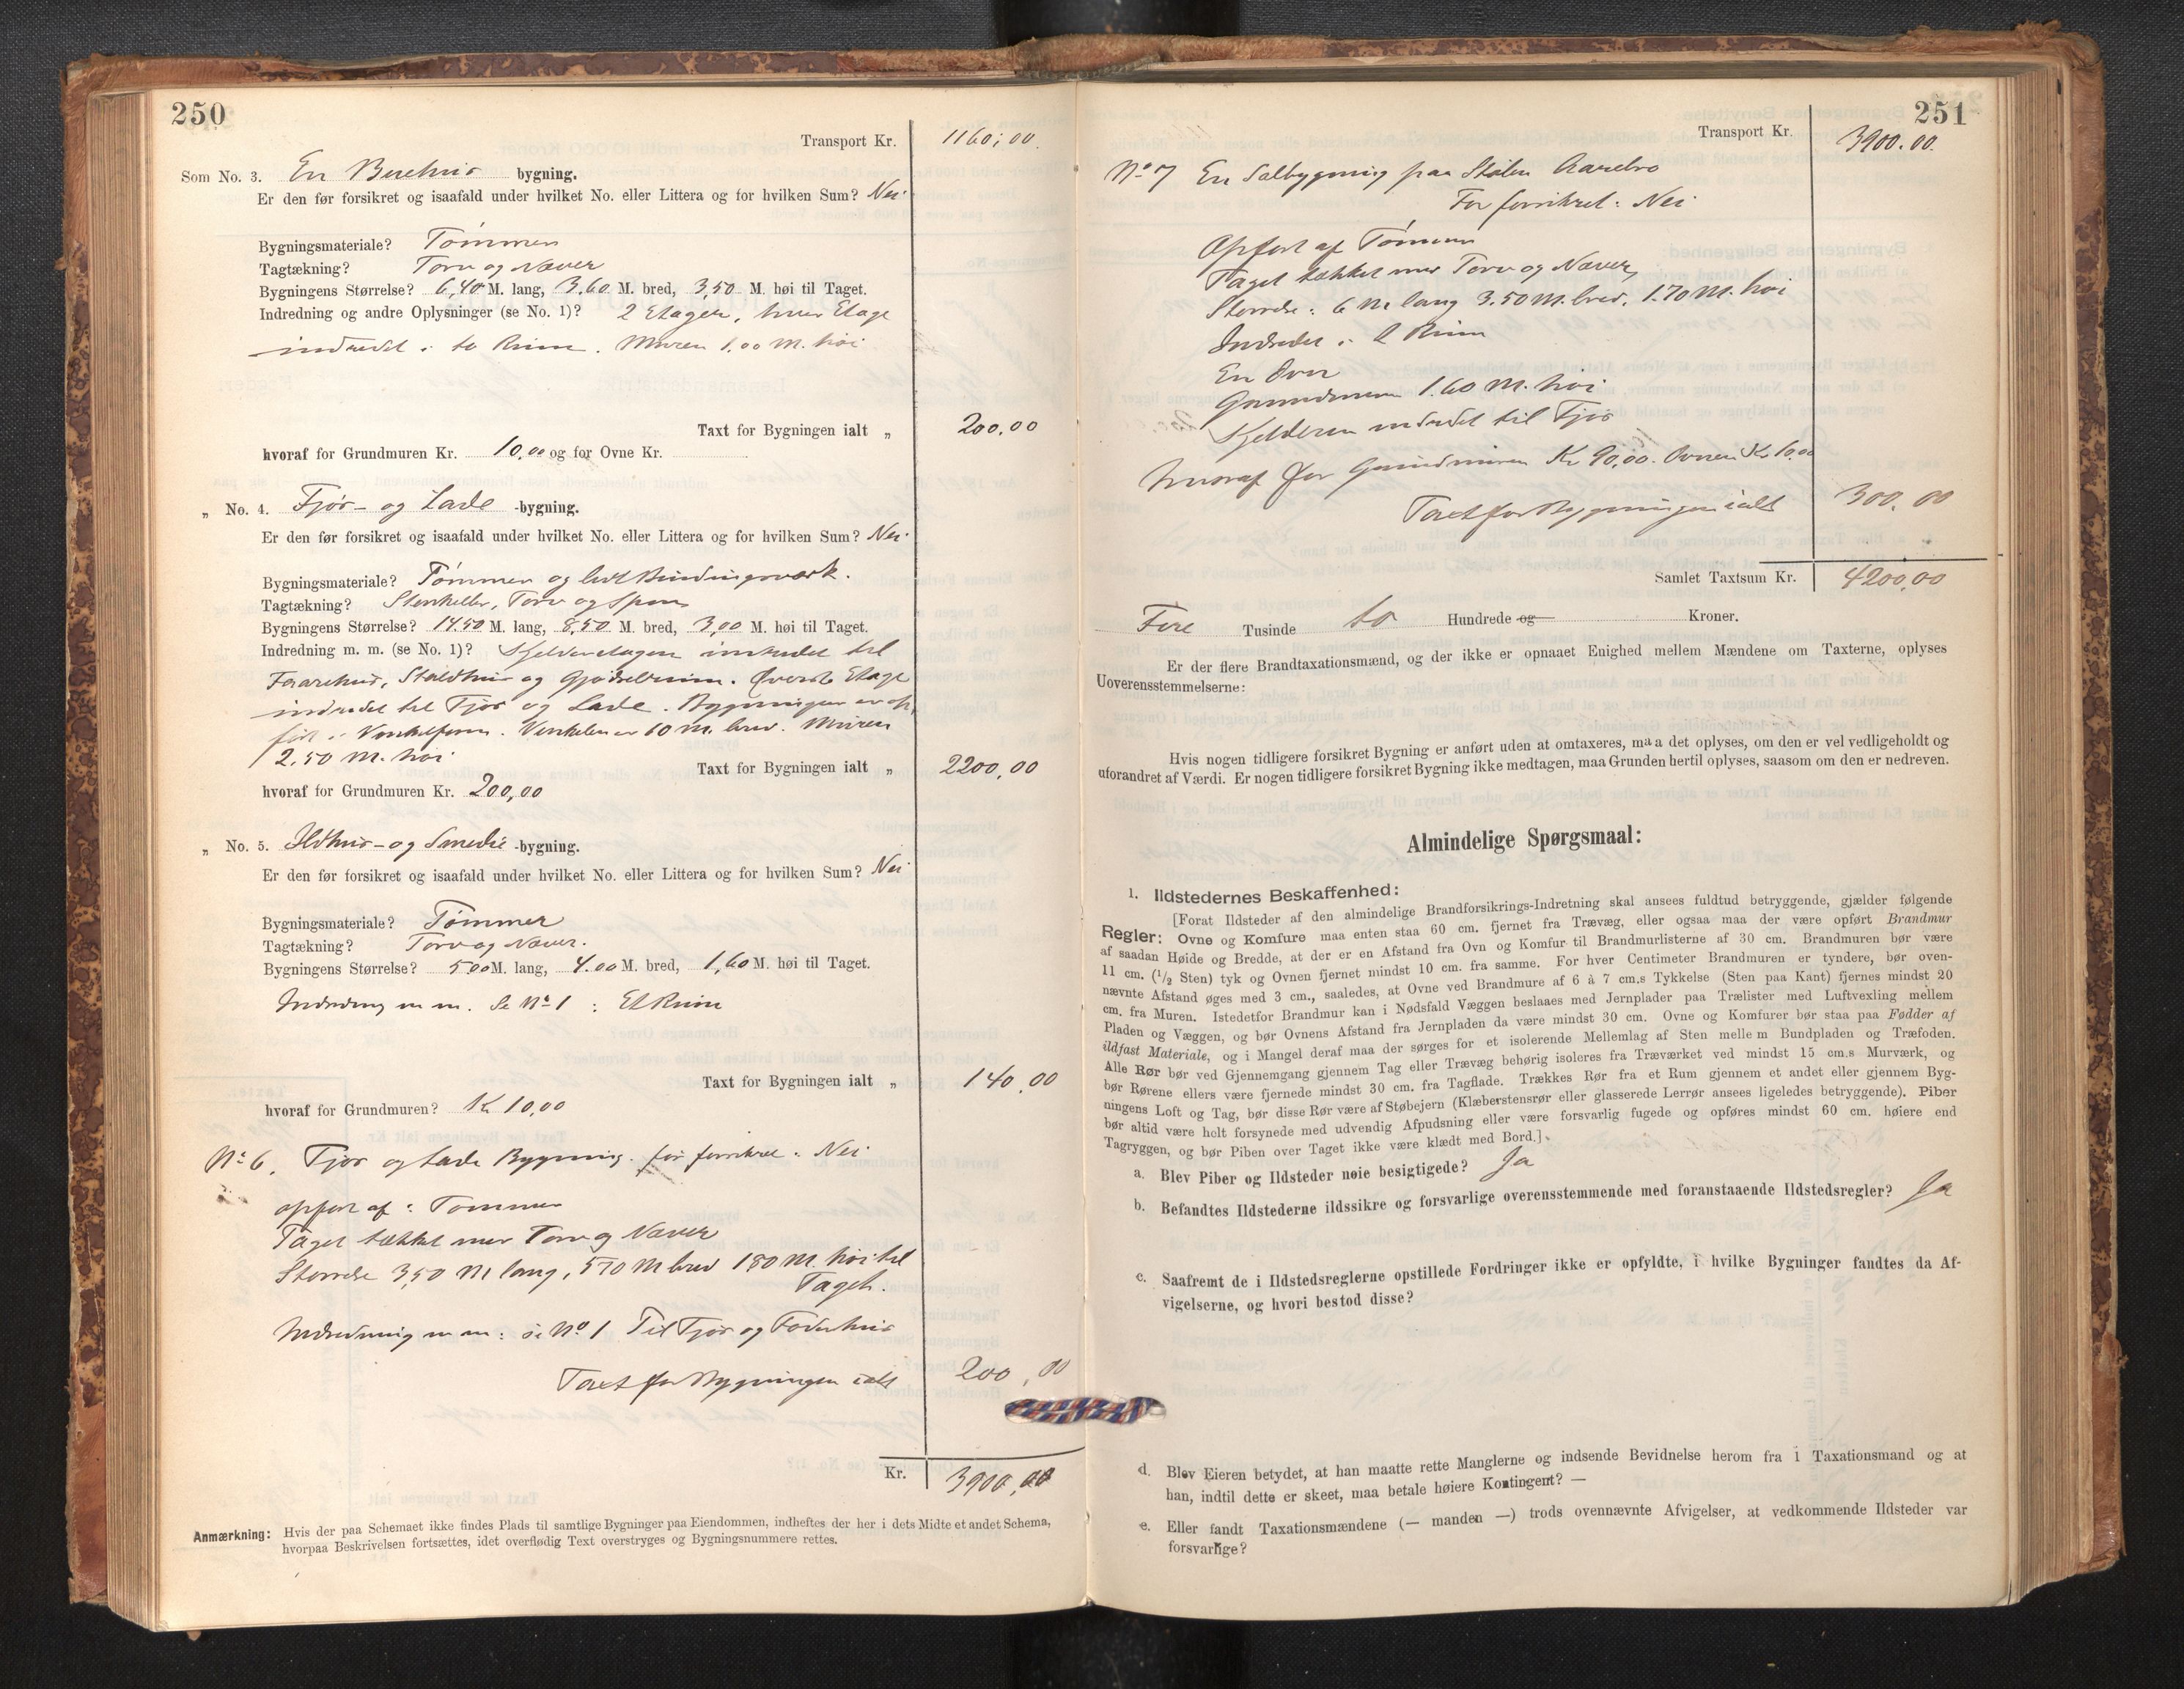 250
Transport Kr. 1160,00.
Som No. 3. En Buehus bygning.
Er den før forsikret og isaafald under hvilket No. eller Littera og for hvilken Sum? Nei.
Bygningsmateriale? Tømmer
Tagtækning? Torv og Næver
Bygningens Størrelse? 6,40 M. lang, 3.60 M. bred, 3,50 M. høi til Taget.
Indredning og andre Oplysninger (se No. 1)? 2 Etager, hver Etage
indredet i to Rum. Muren 1.00 M. høi
Taxt for Bygningen ialt „ 200,00
hvoraf for Grundmuren Kr. 10,00 og for Ovne Kr.
„ No. 4. Fjøs- og Lade -bygning.
Er den før forsikret og isaafald under hvilket No. eller Littera og for hvilken Sum? Nei.
Bygningsmateriale? Tømmer og lidt Bindingsværk.
Tagtækning? Stenheller, Torv og Spon
Bygningens Størrelse? 14.50 M. lang, 8,50 M. bred, 3,00 M. høi til Taget.
Indredning m. m. (se No. 1)? Kjelderetagen indredet til
Faarehus, Staldhus og Gjødselrum. Øverste Etage
indredet til Fjøs og Lade. Bygningen er op,
ført i Vinkelform. Vinkelen er 60 M. bred. Muren
2,50 M. høi
Taxt for Bygningen ialt „ 2200,00
hvoraf for Grundmuren Kr. 200,00
„ No. 5. Ildhus- og Smedie -bygning.
Er den før forsikret og isaafald under hvilket No. eller Littera og for hvilken Sum? Nei
Bygningsmateriale? Tømmer
Tagtækning? Torv og Næver.
Bygningens Størrelse? 5,00 M. lang, 4.00 M. bred, 1,60 M. høi til Taget.
Indredng m m. Se No 1 : Et Rum
Taxt for Bygningen ialt „ 140,00
hvoraf for Grundmuren? Kr 10,00
No 6. Fjøs og Lade Bygning. før forsikret: Nei
opført af: Tømmer
Taget tækket med Torv og Næver
Størrelse 3,50 M lang, 5 70 M bred 1 80 M. høi til
Taget.
Indredning m m: se No 1 Til Fjøs og Foderhus
Taxt for Bygningen ialt 200,00
Kr. 3900,00
Anmærkning: Hvis der paa Schemaet ikke findes Plads til samtlige Bygninger paa Eiendommen, indheftes der her i dets Midte et andet Schema,
hvorpaa Beskrivelsen fortsættes, idet overflødig Text overstryges og Bygningsnummere rettes.
251
Transport Kr. 3900.00.
No 7 En Sælbygning paa Stølen Aarebro
Før forsikret: Nei
Opført af Tømmer
Taget tækket med Torv og Næver,
Størrelse: 6 M lang 3.50 M. bred, 1.70 M. høi
Indredet i 2 Rum
En Ovn
Grundmuren 1.60 M. høi
Kjelderen indredet til Fjøs
hvoraf for Grundmuren Kr 90,00. Ovnen Kr 10.00
Taxt for Bygningen ialt 300,00
Samlet Taxtsum Kr. 4200,00
Fire Tusinde to Hundrede og Kroner.
Er der flere Brandtaxationsmænd, og der ikke er opnaaet Enighed mellem Mændene om Taxterne, oplyses
Uoverensstemmelserne:
Hvis nogen tidligere forsikret Bygning er anført uden at omtaxeres, maa det oplyses, om den er vel vedligeholdt og
uforandret af Værdi. Er nogen tidligere forsikret Bygning ikke medtagen, maa Grunden hertil oplyses, saasom om den er nedreven.
Almindelige Spørgsmaal:
1. Ildstedernes Beskaffenhed:
[Forat Ildsteder af den almindelige Brandforsikrings-Indretning skal ansees fuldtud betryggende, gjælder følgende
Regler: Ovne og Komfure maa enten staa 60 cm. fjernet fra Trævæg, eller ogsaa maa der være opført Brandmur
af saadan Høide og Bredde, at der er en Afstand fra Ovn og Komfur til Brandmurlisterne af 30 cm. Brandmuren bør være
11 cm. (1/2 Sten) tyk og Ovnen fjernet mindst 10 cm. fra samme. For hver Centimeter Brandmuren er tyndere, bør oven-
nævnte Afstand øges med 3 cm., saaledes, at Ovne ved Brandmure af 6 à 7 cm.s Tykkelse (Sten paa Kant) fjernes mindst 20
cm. fra Muren. Istedetfor Brandmur kan i Nødsfald Væggen beslaaes med Jernplader paa Trælister med Luftvexling mellem
Pladen og Væggen, og bør Ovnens Afstand fra Jernpladen da være mindst 30 cm. Ovne og Komfurer bør staa paa Fødder af
ildfast Materiale, og i Mangel deraf maa der sørges for et isolerende Mellemlag af Sten mellem Bundpladen og Træfoden.
Alle Rør bør ved Gjennemgang gjennem Tag eller Trævæg behørig isoleres fra Træværket ved mindst 15 cm.s Murværk, og
bør Rørene ellers være fjernede mindst 30 cm. fra Tagflade. Trækkes Rør fra et Rum gjennem et andet eller gjennem Byg-
ningens Loft og Tag, bør disse Rør være af Støbejern (Klæberstensrør eller glasserede Lerrør ansees ligeledes betryggende). Piber
bør altid være helt forsynede med udvendig Afpudsning eller være forsvarlig fugede og opføres mindst 60 cm. høiere end
Tagryggen, og bør Piben over Taget ikke være klædt med Bord.]
a. Blev Piber og Ildsteder nøie besigtigede? Ja
b. Befandtes Ildstederne ildssikre og forsvarlige overensstemmende med foranstaaende Ildstedsregler? Ja
c. Saafremt de i Ildstedsreglerne opstillede Fordringer ikke er opfyldte, i hvilke Bygninger fandtes da Af-
vigelserne, og hvori bestod disse?
d. Blev Eieren betydet, at han maatte rette Manglerne og indsende Bevidnelse herom fra 1 Taxationsmand og at
han, indtil dette er skeet, maa betale høiere Kontingent? —
e. Eller fandt Taxationsmændene (— manden —) trods ovennævnte Afvigelser, at vedkommende Ildsteder var
forsvarlige?